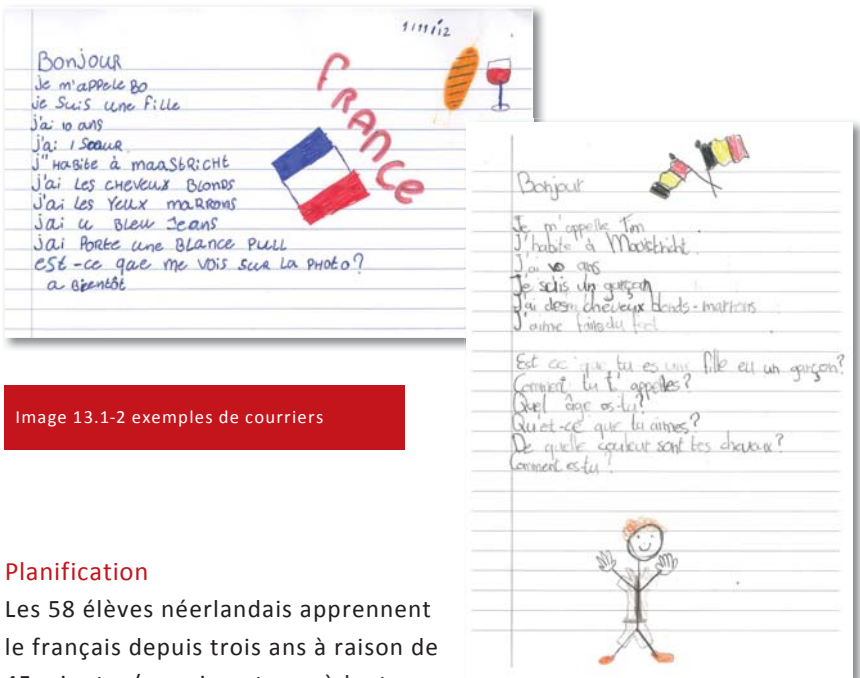 1/11/12
BonJouR
Je m'aPPele Bo
je Suis une Fille
J'ai 10 ans
j'ai 1 Soeur
j'HaBite à maaStRicHt
j'ai Les cHeveux BLonDs
J'ai les Yeux maRRons
Jai u BLeu Jeans
Jai PoRte une BLance PuLL
eSt-ce que me VOIS SuR La PHoto?
a BientÔt
FRANCe
Bonjour
Je m'appelle Tim
J'habite à Maastricht
J'ai 10 ans
Je suis un garçon
J'ai des cheveux blonds-marrons
J'aime faire du foot
Est ce que tu es une fille ou un garçon?
Comment tu t'appelles?
Quel âge as-tu?
Qu'et-ce que tu aimes?
De quelle couleur sont tes cheveux?
Comment es tu?
Image 13.1-2 exemples de courriers
Planification
Les 58 élèves néerlandais apprennent
le français depuis trois ans à raison de